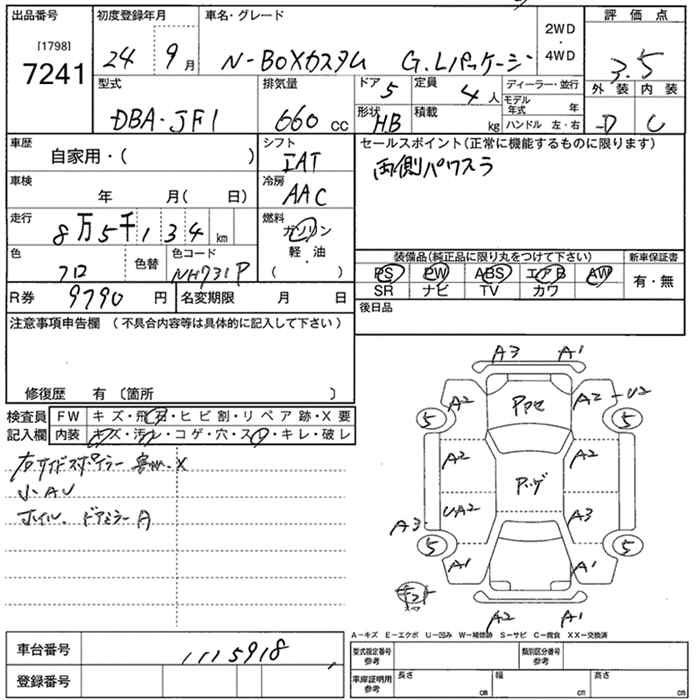 出品番号 初度登録年月 車名・グレード 2WD・4WD 評価点
[1798]
7241 24 9月 N-BOXカスタム G.Lパッケージ 3.5
型式 排気量 ドア 5 定員 4人 ディーラー・並行 外装 内装
DBA-JF1 660cc 形状 HB 積載 kg モデル年式 年 D C
ハンドル 左・右
車歴 自家用・( ) シフト IAT セールスポイント(正常に機能するものに限ります)
両側パワスラ
車検 年 月( 日) 冷房 AAC
走行 8万5千134km 燃料 ガソリン
軽・油
( )
色 クロ 色替 色コード NH731P
装備品(純正品に限り丸をつけて下さい) 新車保証書
PS PW ABS エアB AW 有・無
SR ナビ TV カワ
R券 9790円 名変期限 月 日 後日品
注意事項申告欄 (不具合内容等は具体的に記入して下さい)
修復歴 有〔箇所 〕
検査員 FW キズ・飛石・ヒビ割・リペア跡・X要
記入欄 内装 キズ・汚レ・コゲ・穴・スレ・キレ・破レ
右サイドスポイラー X
小AU
ホイル、ドアミラーA
A3 A1
A2 A2-U2
5 5
A2 A2
UA2
A3 A3
5 5
A1 A1
A2 A1
A-キズ E-エクボ U-凹み W-補修跡 S-サビ C-腐食 XX-交換済
車台番号 1115918
登録番号
型式指定番号参考 類別区分番号参考
車庫証明用参考 長さ cm 幅 cm 高さ cm